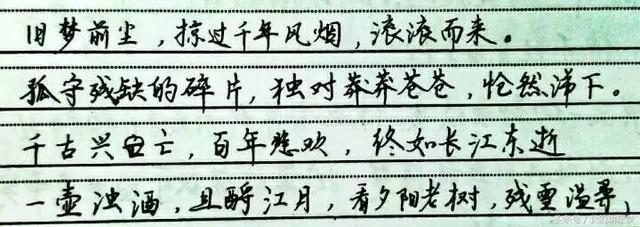 旧梦前尘，掠过千年风烟，滚滚而来。
孤守残缺的碎片，独对莽莽苍苍，怆然涕下。
千古兴亡，百年悲欢，终如长江东逝
一壶浊酒，且酹江月，看夕阳老树，残垩温寻，